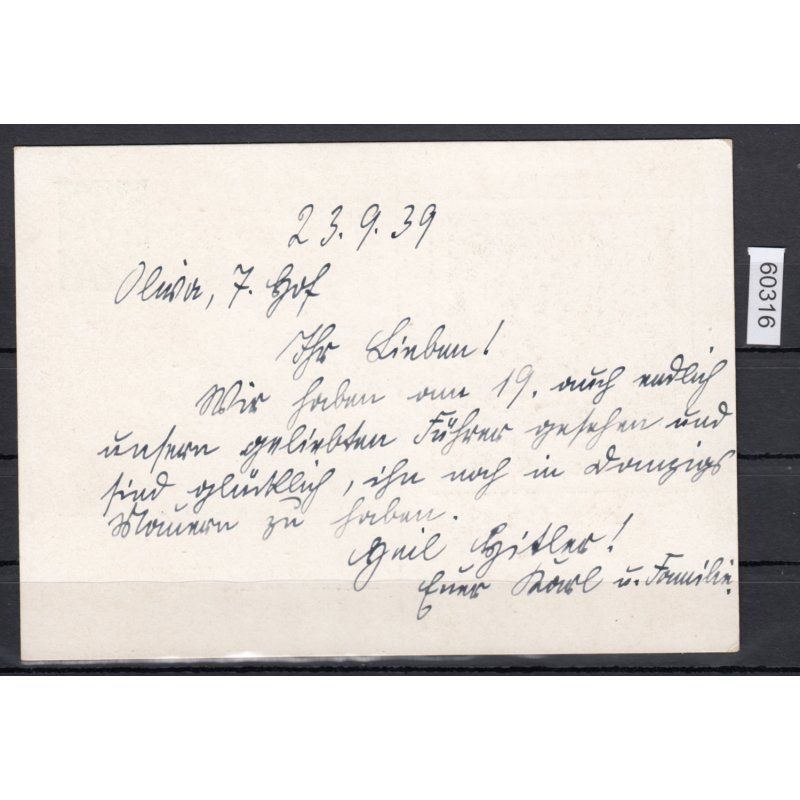 23.9.39
Oliva, 7. Hof
Ihr Lieben!
Wir haben am 19. auch endlich
unsern geliebten Führer gesehen und
sind glücklich, ihn noch in Danzigs
Mauern zu haben.
Heil Hitler!
Euer Karl u. Familie.
60316